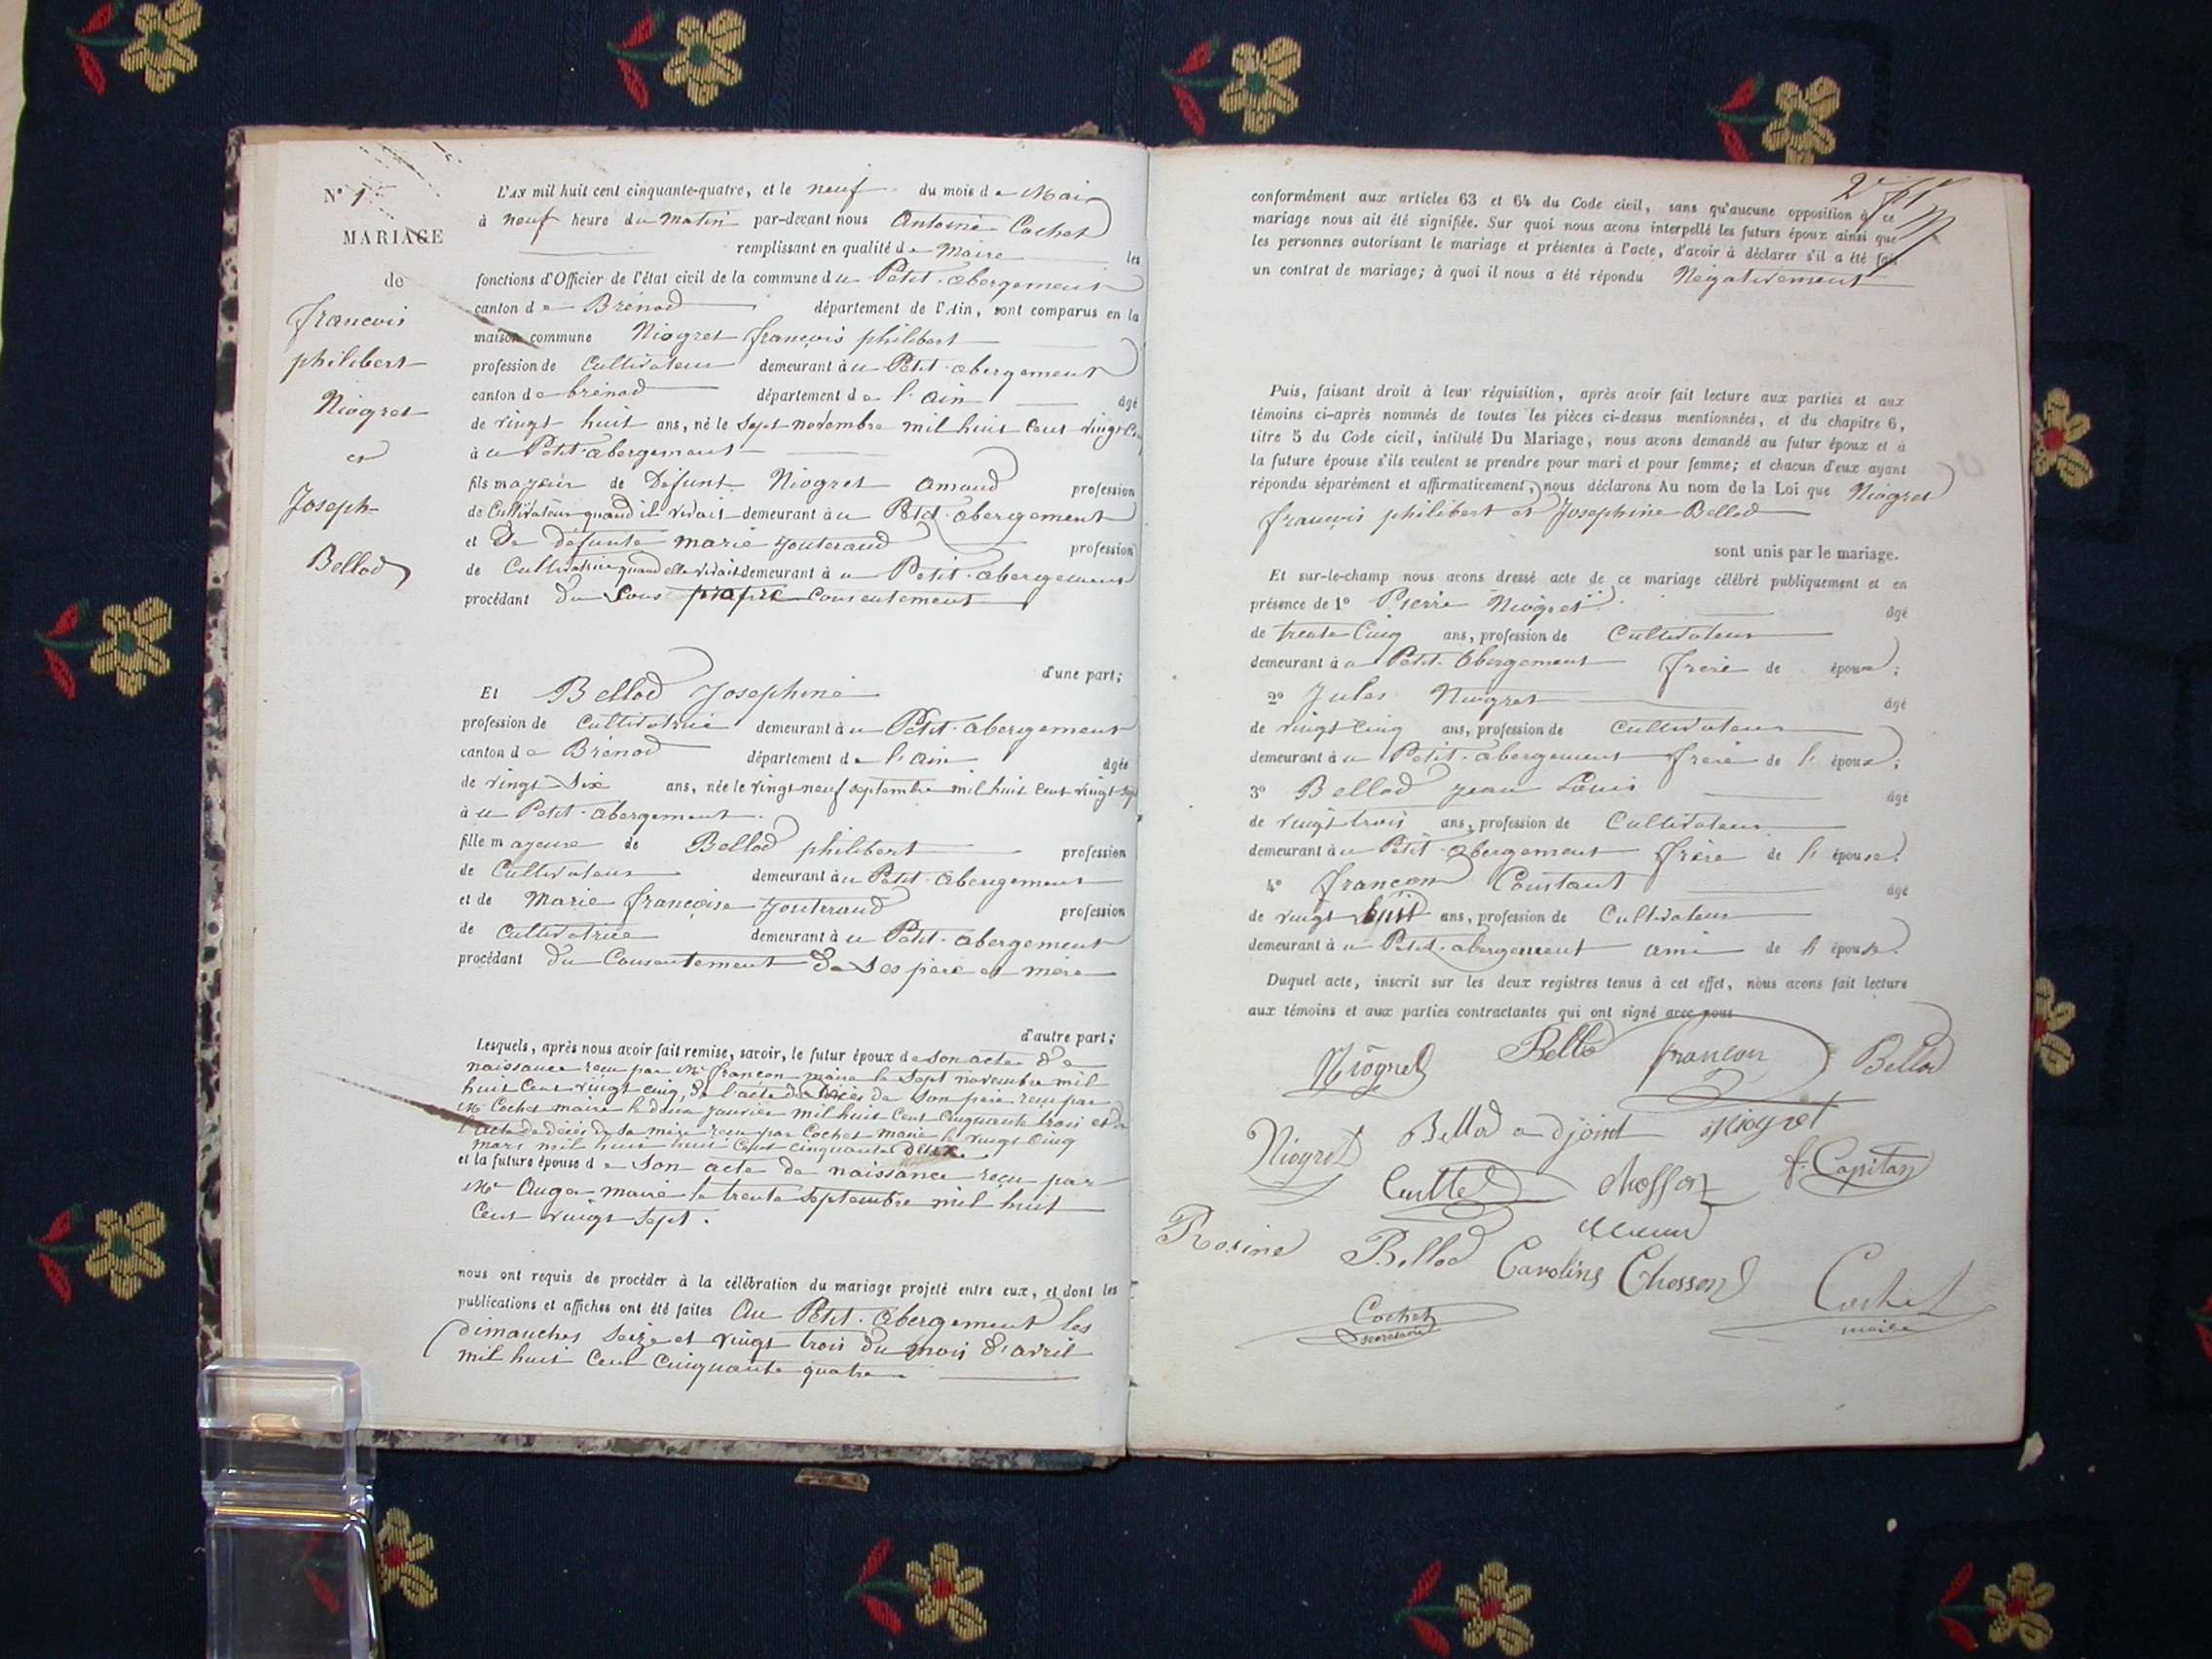 N° 1
MARIAGE
de
françois
philibert
Niogret
et
Joseph
Bellod
L'AN mil huit cent cinquante-quatre, et le neuf du mois de Mai
à neuf heure du Matin par-devant nous Antoine Cochet
remplissant en qualité de Maire les
fonctions d'Officier de l'état civil de la commune du Petit-abergement
canton de Brénod département de l'Ain, sont comparus en la
maison commune Niogret françois philibert
profession de Cultivateur demeurant àu Petit-abergement
canton de brénod département de l'ain âgé
de vingt huit ans, né le Sept novembre mil huit Cent vingt
àu Petit-abergement
fils majeur de Défunt Niogret amand profession
de Cultivateur quand il vivait demeurant àu Petit-abergement
et De défunte marie Jouteraud profession
de Cultivatrice quand elle vivait demeurant àu Petit-abergement
procédant du Sous propre Consentement
d'une part;
Et Bellod Josephine
profession de Cultivatrice demeurant àu Petit-abergement
canton de Brénod département de l'ain âgée
de vingt Six ans, née le vingt neuf septembre mil huit Cent vingt Sept
àu Petit-abergement.
fille majeure de Bellod philibert profession
de Cultivateur demeurant àu Petit-abergement
et de Marie françoise Jouteraud profession
de Cultivatrice demeurant àu Petit-abergement
procédant du Consentement De Ses père et mère
d'autre part;
Lesquels, après nous avoir fait remise, savoir, le futur époux de son acte de
naissance reçu par Mr françon maire le Sept novembre mil
huit Cent vingt cinq, de l'acte de Décès de Son père reçu par
Mr Cochet maire le deux Janvier mil huit Cent Cinquante trois et de
l'acte de décès de Sa mère reçu par Cochet maire le vingt Cinq
mars mil huit huit Cent cinquante deux
et la future épouse de Son acte de naissance reçu par
Mr Auger maire le trente Septembre mil huit
Cent vingt Sept.
nous ont requis de procéder à la célébration du mariage projeté entre eux, et dont les
publications et affiches ont été faites Au Petit-abergement les
dimanches Seize et vingt trois du mois d'avril
mil huit Cent Cinquante quatre
conformément aux articles 63 et 64 du Code civil, sans qu'aucune opposition à ce
mariage nous ait été signifiée. Sur quoi nous avons interpellé les futurs époux ainsi que
les personnes autorisant le mariage et présentes à l'acte, d'avoir à déclarer s'il a été fait
un contrat de mariage; à quoi il nous a été répondu Négativement
Puis, faisant droit à leur réquisition, après avoir fait lecture aux parties et aux
témoins ci-après nommés de toutes les pièces ci-dessus mentionnées, et du chapitre 6,
titre 5 du Code civil, intitulé Du Mariage, nous avons demandé au futur époux et à
la future épouse s'ils veulent se prendre pour mari et pour femme; et chacun d'eux ayant
répondu séparément et affirmativement, nous déclarons Au nom de la Loi que Niogret
françois philibert et Josephine Bellod
sont unis par le mariage.
Et sur-le-champ nous avons dressé acte de ce mariage célébré publiquement et en
présence de 1° Pierre Niogret âgé
de trente Cinq ans, profession de Cultivateur
demeurant àu Petit-abergement frère de époux;
2° Jules Niogret âgé
de vingt Cinq ans, profession de Cultivateur
demeurant àu Petit-abergement frère de l'époux;
3° Bellod jean Louis âgé
de vingt trois ans, profession de Cultivateur
demeurant àu Petit-abergement frère de l'épouse;
4° françon Constant âgé
de vingt huit ans, profession de Cultivateur
demeurant àu Petit-abergement ami de l'épouse.
Duquel acte, inscrit sur les deux registres tenus à cet effet, nous avons fait lecture
aux témoins et aux parties contractantes qui ont signé avec nous
Niogret Bellod françon Bellod
Niogret Bellod adjoint Niogret
Cuttel Chosson f. Capitan
Rosine Bellod Caroline Chosson Cochet
maire
Cochet
secretaire